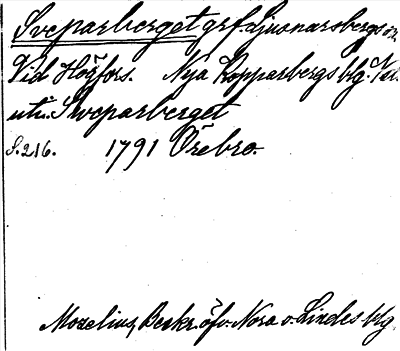 Sveparberget grf. Ljusnarsbergs sn.
Vid Högfors. Nya Kopparbergs blg.
utm. Sweparberget
S. 216. 1791 Örebro.
Mozelius, Beskr. öfv. Nora o. Lindes blg